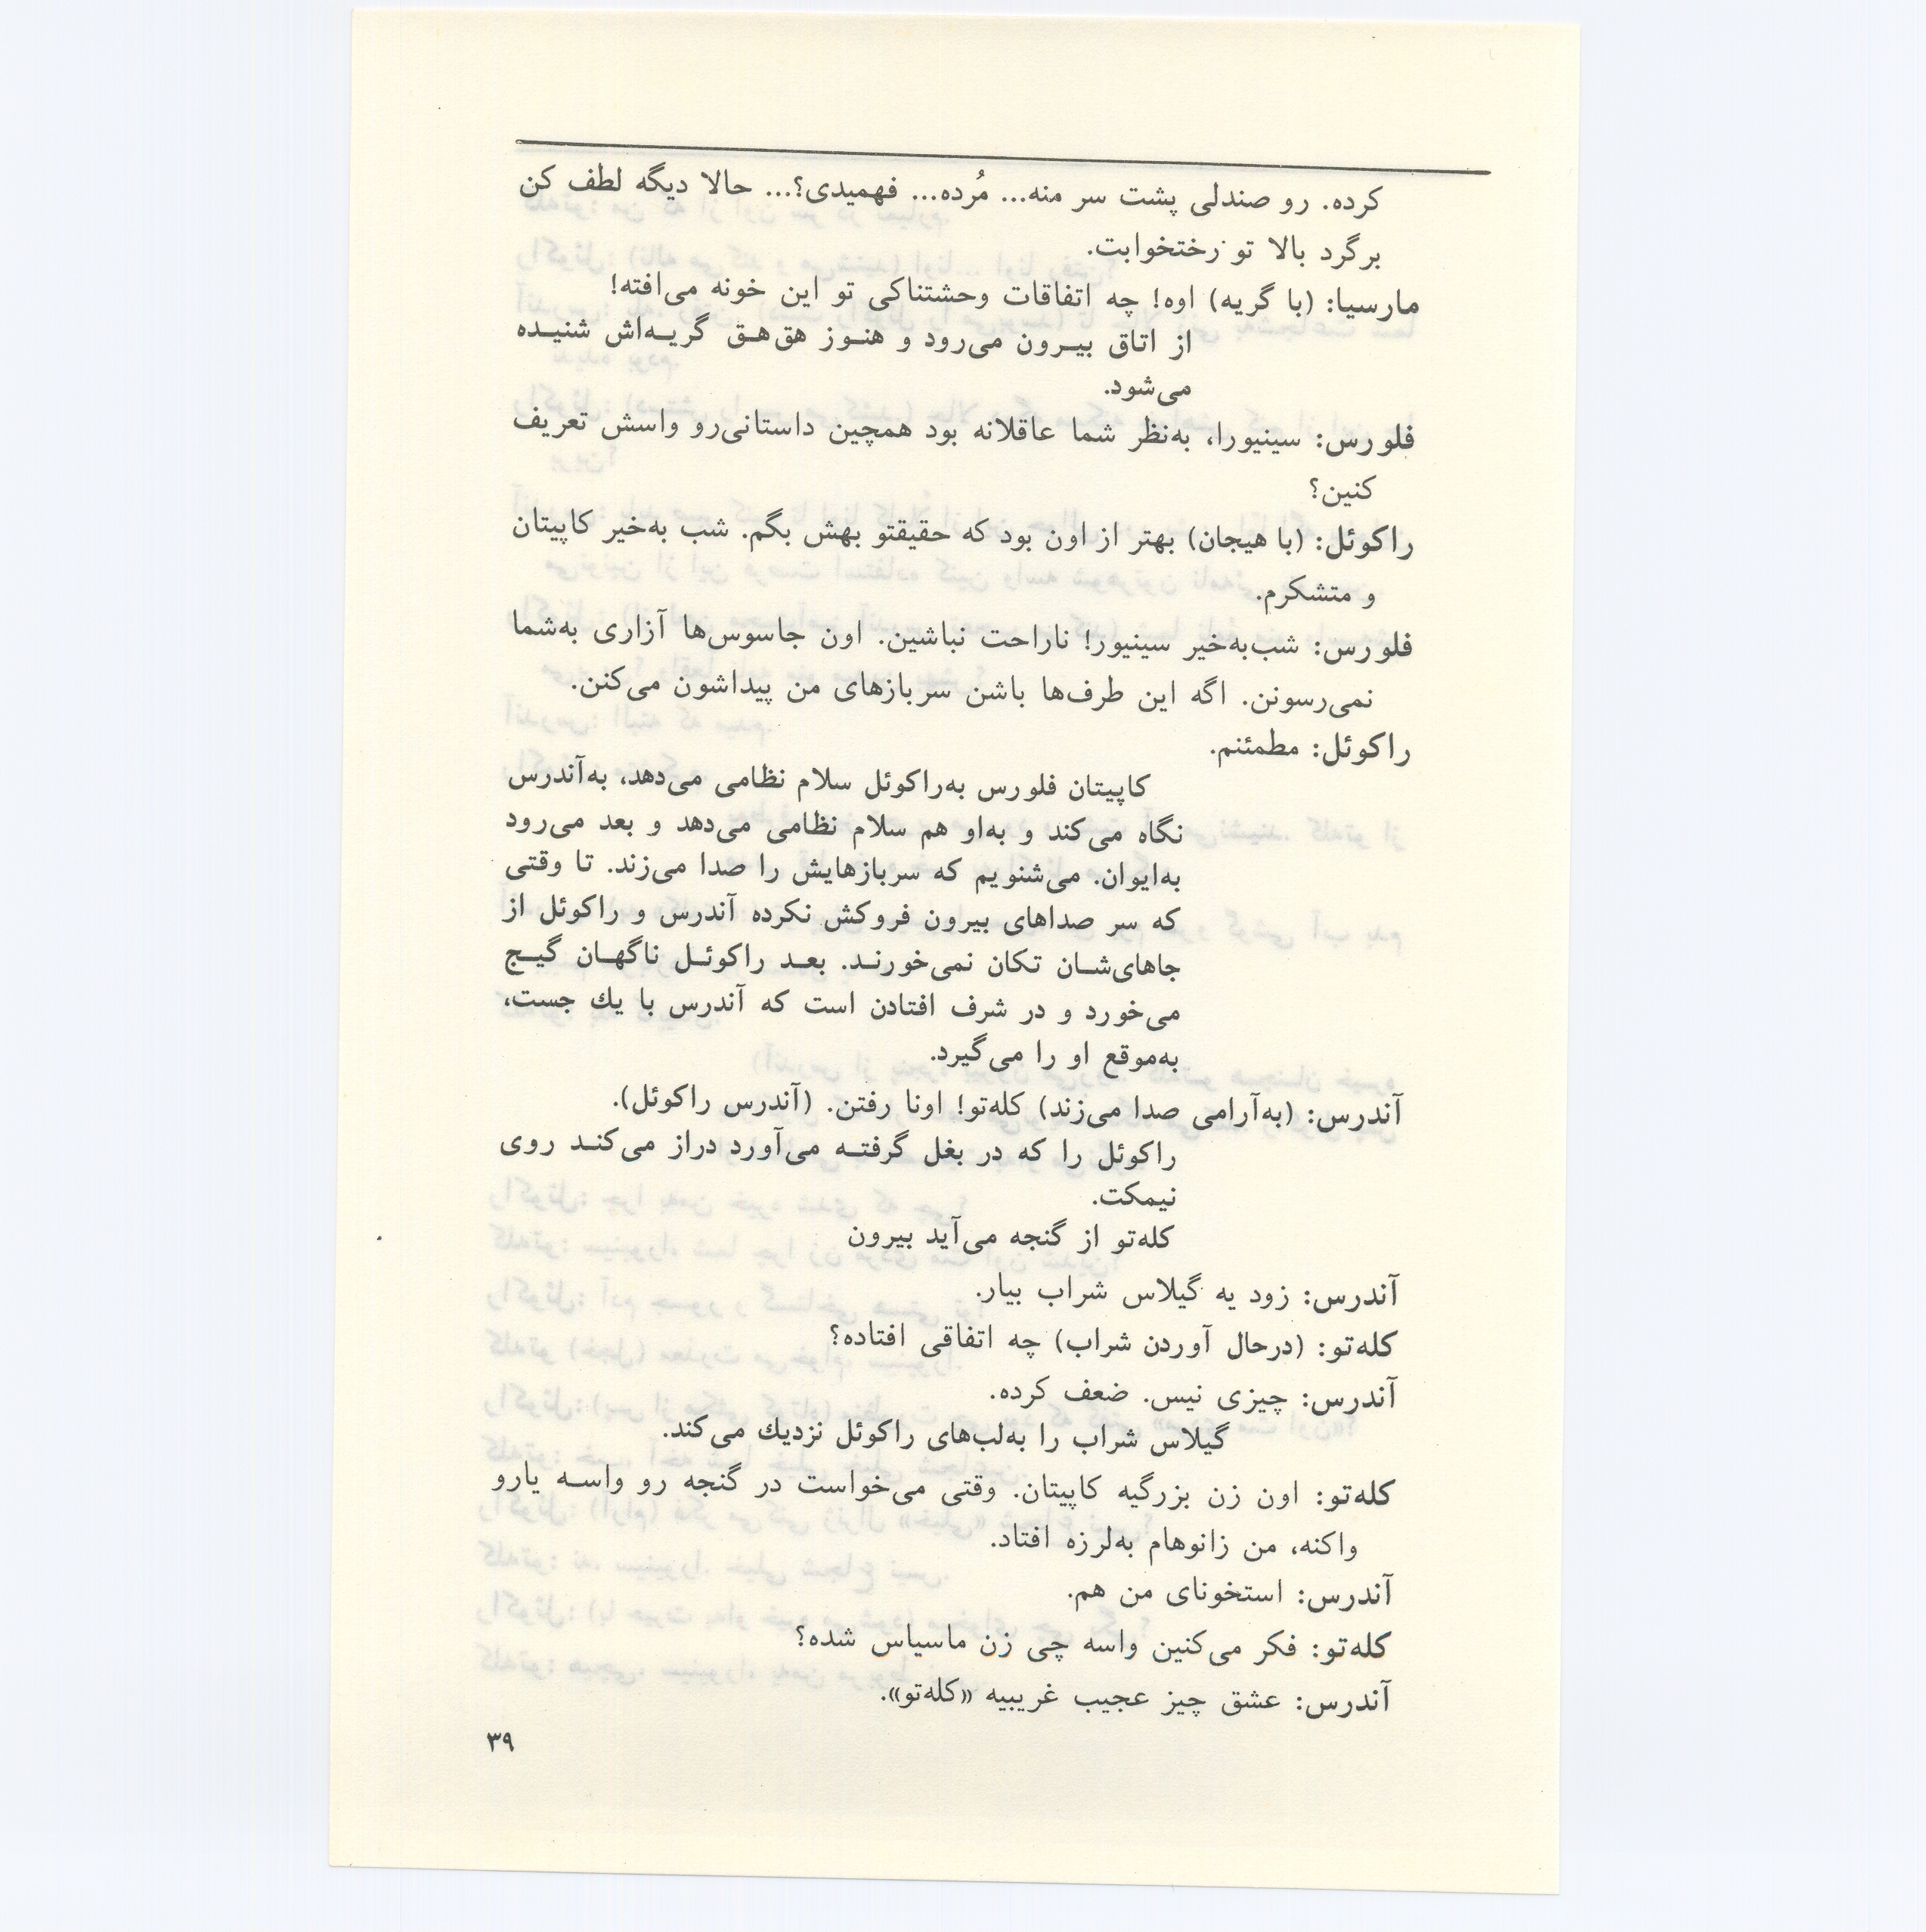 کرده. رو صندلی پشت سر منه... مُرده... فهمیدی؟... حالا دیگه لطف کن
برگرد بالا تو رختخوابت.
مارسیا: (با گریه) اوه! چه اتفاقات وحشتناکی تو این خونه می‌افته!
از اتاق بیـرون می‌رود و هنـوز هق‌هـق گریـه‌اش شنیـده
می‌شود.
فلورس: سینیورا، به‌نظر شما عاقلانه بود همچین داستانی‌رو واسش تعریف
کنین؟
راکوئل: (با هیجان) بهتر از اون بود که حقیقتو بهش بگم. شب به‌خیر کاپیتان
و متشکرم.
فلورس: شب‌به‌خیر سینیور! ناراحت نباشین. اون جاسوس‌ها آزاری به‌شما
نمی‌رسونن. اگه این طرف‌ها باشن سربازهای من پیداشون می‌کنن.
راکوئل: مطمئنم.
کاپیتان فلورس به‌راکوئل سلام نظامی می‌دهد، به‌آندرس
نگاه می‌کند و به‌او هم سلام نظامی می‌دهد و بعد می‌رود
به‌ایوان. می‌شنویم که سربازهایش را صدا می‌زند. تا وقتی
که سر صداهای بیرون فروکش نکرده آندرس و راکوئل از
جاهای‌شـان تکان نمی‌خورنـد. بعـد راکوئـل ناگهـان گیـج
می‌خورد و در شرف افتادن است که آندرس با یك جست،
به‌موقع او را می‌گیرد.
آندرس: (به‌آرامی صدا می‌زند) کله‌تو! اونا رفتن. (آندرس راکوئل).
راکوئل را که در بغل گرفتـه می‌آورد دراز می‌کنـد روی
نیمکت.
کله‌تو از گنجه می‌آید بیرون
آندرس: زود یه گیلاس شراب بیار.
کله‌تو: (درحال آوردن شراب) چه اتفاقی افتاده؟
آندرس: چیزی نیس. ضعف کرده.
گیلاس شراب را به‌لب‌های راکوئل نزدیك می‌کند.
کله‌تو: اون زن بزرگیه کاپیتان. وقتی می‌خواست در گنجه رو واسـه یارو
واکنه، من زانوهام به‌لرزه افتاد.
آندرس: استخونای من هم.
کله‌تو: فکر می‌کنین واسه چی زن ماسیاس شده؟
آندرس: عشق چیز عجیب غریبیه «کله‌تو».
۳۹